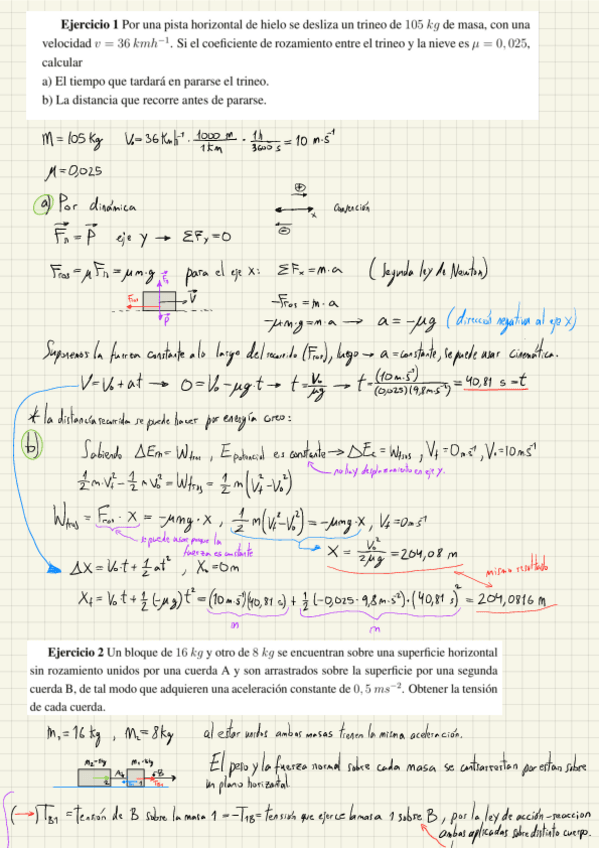 Ejercicio 1 Por una pista horizontal de hielo se desliza un trineo de 105 kg de masa, con una
velocidad v = 36 kmh⁻¹. Si el coeficiente de rozamiento entre el trineo y la nieve es μ = 0,025,
calcular
a) El tiempo que tardará en pararse el trineo.
b) La distancia que recorre antes de pararse.
m = 105 Kg V₀ = 36 Km h⁻¹ · 1000 m / 1 km · 1h / 3600 s = 10 m·s⁻¹
μ = 0,025
a) Por dinámica
⊕
x Convención
⊖
F⃗n = P⃗ eje y → ΣFy = 0
Fros = μ Fn = μ m·g para el eje x: ΣFx = m·a (Segunda ley de Newton)
Fn
Fros V⃗ -Fros = m·a
P⃗ -μ·m·g = m·a → a = -μg (dirección negativa al eje x)
Suponemos la fuerza constante a lo largo del recorrido (Fros), luego → a = constante, se puede usar cinemática.
V = V₀ + at → 0 = V₀ - μg·t → t = V₀/μg → t = (10 m·s⁻¹)/((0,025)(9,8 m·s⁻²)) = 40,81 s = t
* la distancia recorrida se puede hacer por energía creo:
b) Sabiendo ΔEm = Wfros, E potencial es constante → ΔEc = Wfros, Vf = 0 m s⁻¹, V₀ = 10 m s⁻¹
no hay desplazamiento en eje y.
1/2 m·Vf² - 1/2 m V₀² = Wfros = 1/2 m (Vf² - V₀²)
Wfros = Fros · x = -μmg · x, 1/2 m(Vf² - V₀²) = -μmg·x, Vf = 0 m s⁻¹
se puede usar porque la
fuerza es constante
x = V₀²/2μg = 204,08 m
mismo resultado
Δx = V₀t + 1/2 at², X₀ = 0 m
Xf = V₀t + 1/2 (-μg)t² = (10 m·s⁻¹)(40,81 s) + 1/2 (-0,025·9,8 m·s⁻²)·(40,81 s)² = 204,0816 m
m m
Ejercicio 2 Un bloque de 16 kg y otro de 8 kg se encuentran sobre una superficie horizontal
sin rozamiento unidos por una cuerda A y son arrastrados sobre la superficie por una segunda
cuerda B, de tal modo que adquieren una aceleración constante de 0,5 ms⁻². Obtener la tensión
de cada cuerda.
m₁ = 16 kg, m₂ = 8 kg al estar unidos ambas masas tienen la misma aceleración.
El peso y la fuerza normal sobre cada masa se contrarrestan por estar sobre
un plano horizontal.
(→) T_B1 = tensión de B sobre la masa 1 = -T_1B = tensión que ejerce la masa 1 sobre B, por la ley de acción-reacción
ambas aplicadas sobre distinto cuerpo.